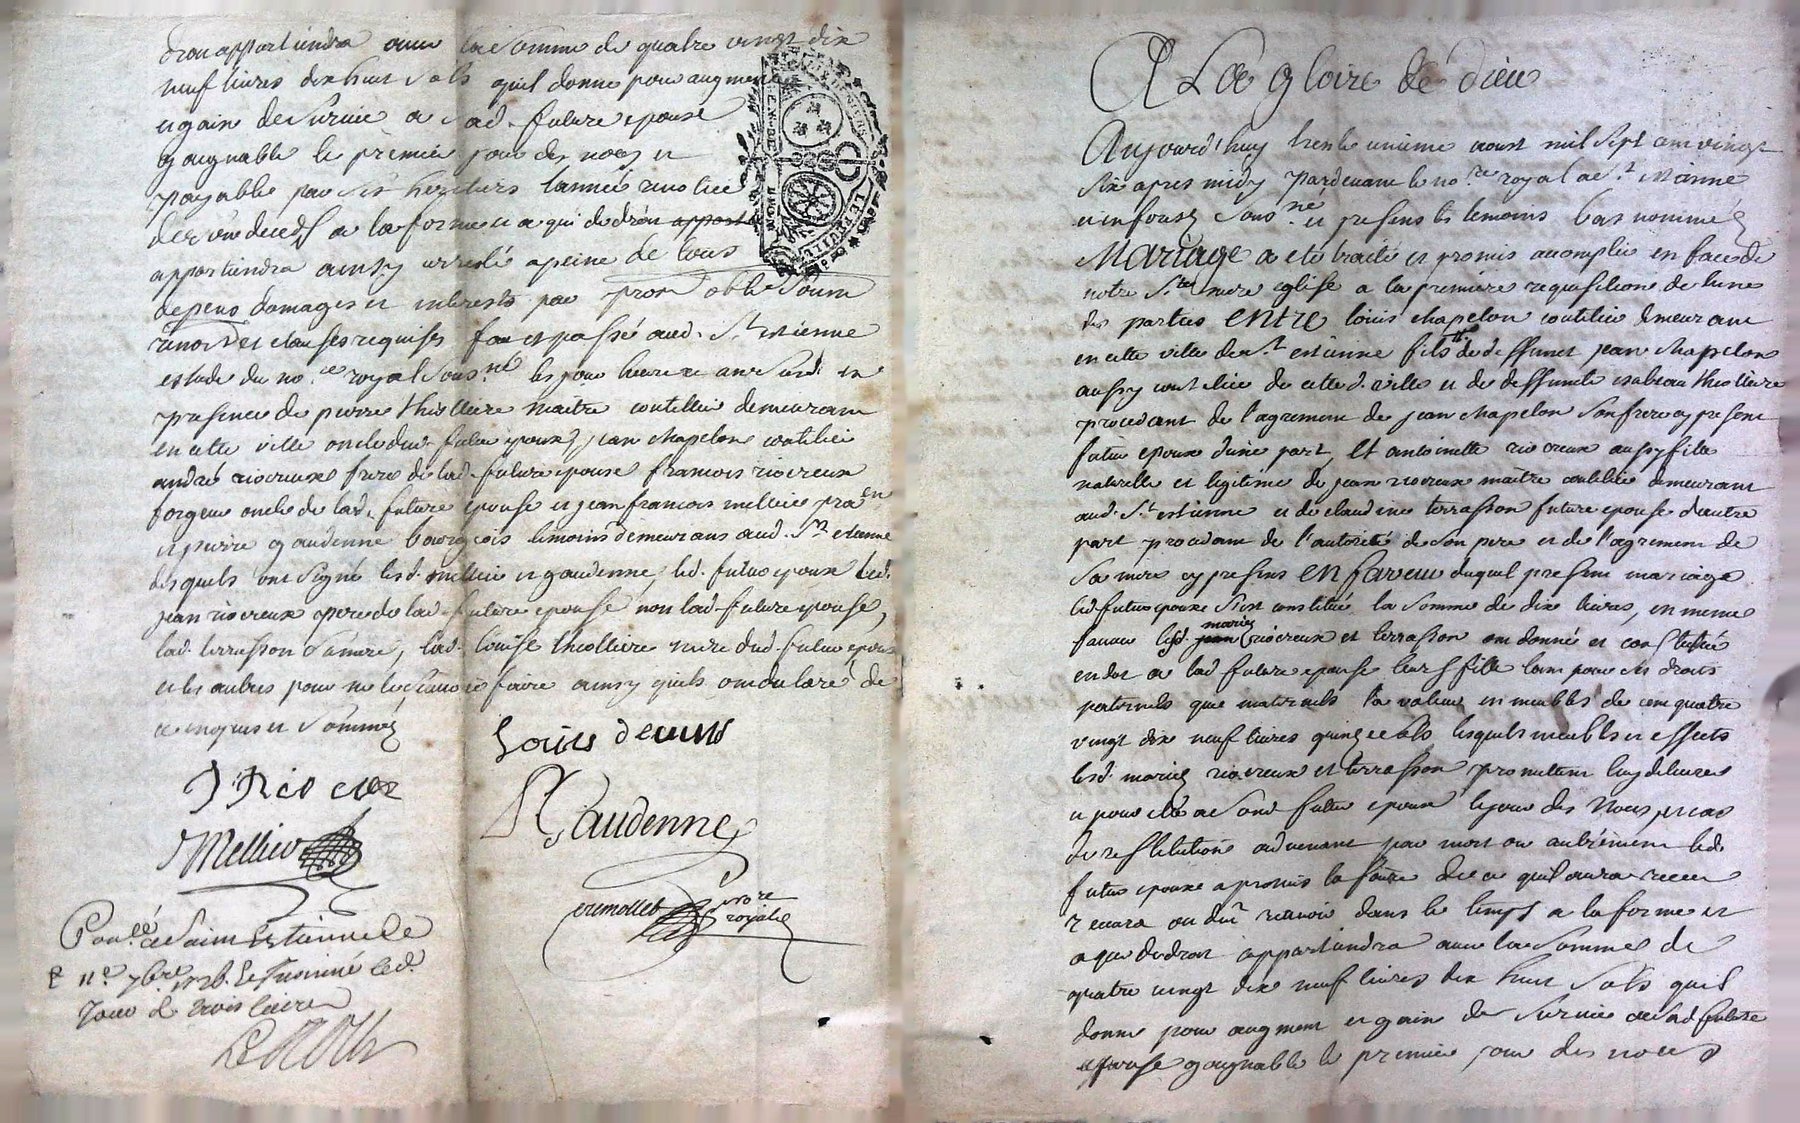 A La gloire de dieu
Aujourd'huy trente unieme aoust mil sept cens vingt
six apres midy pardevant le no.re royal a S.t etienne
en forest sous.né et presents les temoins bas nommés
Mariage a eté traité et promis accomplir en face de
notre S.te mere eglise a la premiere requisitione de lune
des parties entre louis chapelon coutelier demeurant
en cette ville de S.t estienne fils de deffunct jean chapelon
aussy coutelier de cette d. ville et de deffuncte isabeau thiolliere
procedant de l'agrement de jean chapelon son frere cy present
futur epoux d'une part, Et antoinette riocreux aussy fille
naturelle et legitime de jean riocreux maitre coutelier demeurant
aud. S.t estienne et de claudine terrasson future epouse d'autre
part procedant de l'autorité de son pere et de l'agrement de
sa mere cy presens en faveur duquel present mariage
led. futur epoux s'est constitué la somme de dix livres, en meme
faveur lesd. mariés riocreux et terrasson ont donné et constitué
en dot a lad. future epouse leurs fille tant pour ses droits
paternels que maternels la valeur en meubles de cent quatre
vingt dix neuf livres quinze sols lesquels meubles et effects
lesd. mariés riocreux et terrasson promettent luy delivrer
et pour elle a sond. futur epoux le jour des noces, en cas
de restitution advenant par mort ou autrement led.
futur epoux a promis la faire de ce quil aura receu
recevra ou du recevoir dans le temps a la forme et
a qui de droit appartiendra avec la somme de
quatre vingt dix neuf livres dix huit sols quil
donne pour augment et gain de survie a sad. future
epouse gaignable le premier jour des noces
droit appartiendra avec la somme de quatre vingt dix
neuf livres dix huit sols quil donne pour augment
et gain de survie a sad. future epouse
gaignable le premier jour des noces et
payable par ses heritiers l'année revolue
de son deceds a la forme et a qui de droit
appartiendra ainsy arresté a peine de tous
depens domages et interests par prom. obl. soum.
renon. et clauses requises fait et passé aud. S.t etienne
estude du no.re royal sous.né les jour heure et an susd. en
presence de pierre thiolliere maitre coutellier demeurant
en cette ville oncle dud. futur epoux, jean chapelon coutelier
andré riocreux frere de lad. future epouse francois riocreux
forgeur oncle de lad. future epouse et jean francois mellier pra.en
et pierre gaudenne bourgeois temoins demeurans aud. S.t etienne
desquels ont signé lesd. mellier et gaudenne, led. futur epoux led.
jean riocreux pere de lad. future epouse non lad. future epouse,
lad. terrasson sa mere, lad. louise thiolliere mere dud. futur epoux
et les autres pour ne le scavoir faire ainsy quils ont declaré de
ce enquis et sommés
J Riocreux
Mellier
Gaudenne
no.re
royal
Con.lé a Saint Estienne le
11.e 7bre 1726.
trois livres